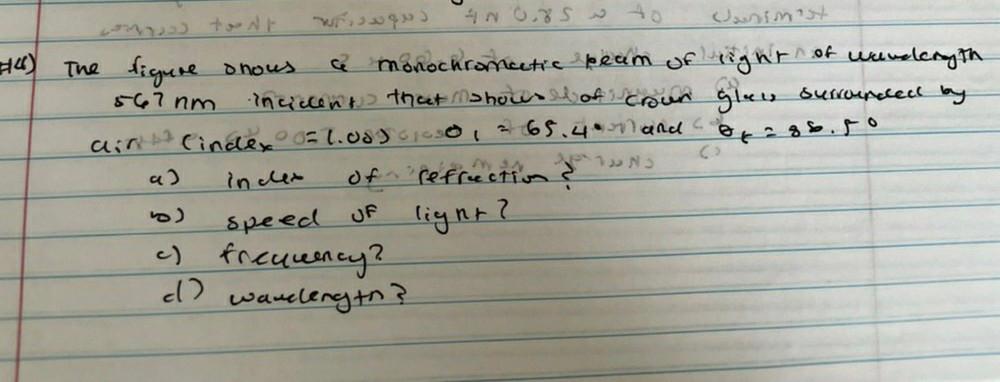 The figure shows a monochromatic beam of light of wavelength
567 nm incident that shows of crown glass surrounded by
air (index = 1.00) θ1 = 65.4° and θt = 35.5°
a) index of refraction?
b) speed of light?
c) frequency?
d) wavelength?